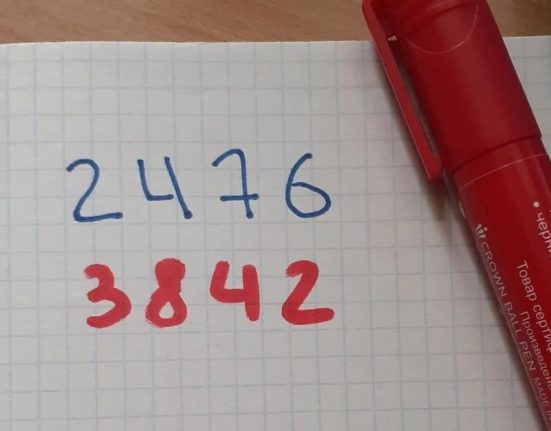 2476
3842
CROWN BALL PEN MADE
Товар серти
Произведено
• черн